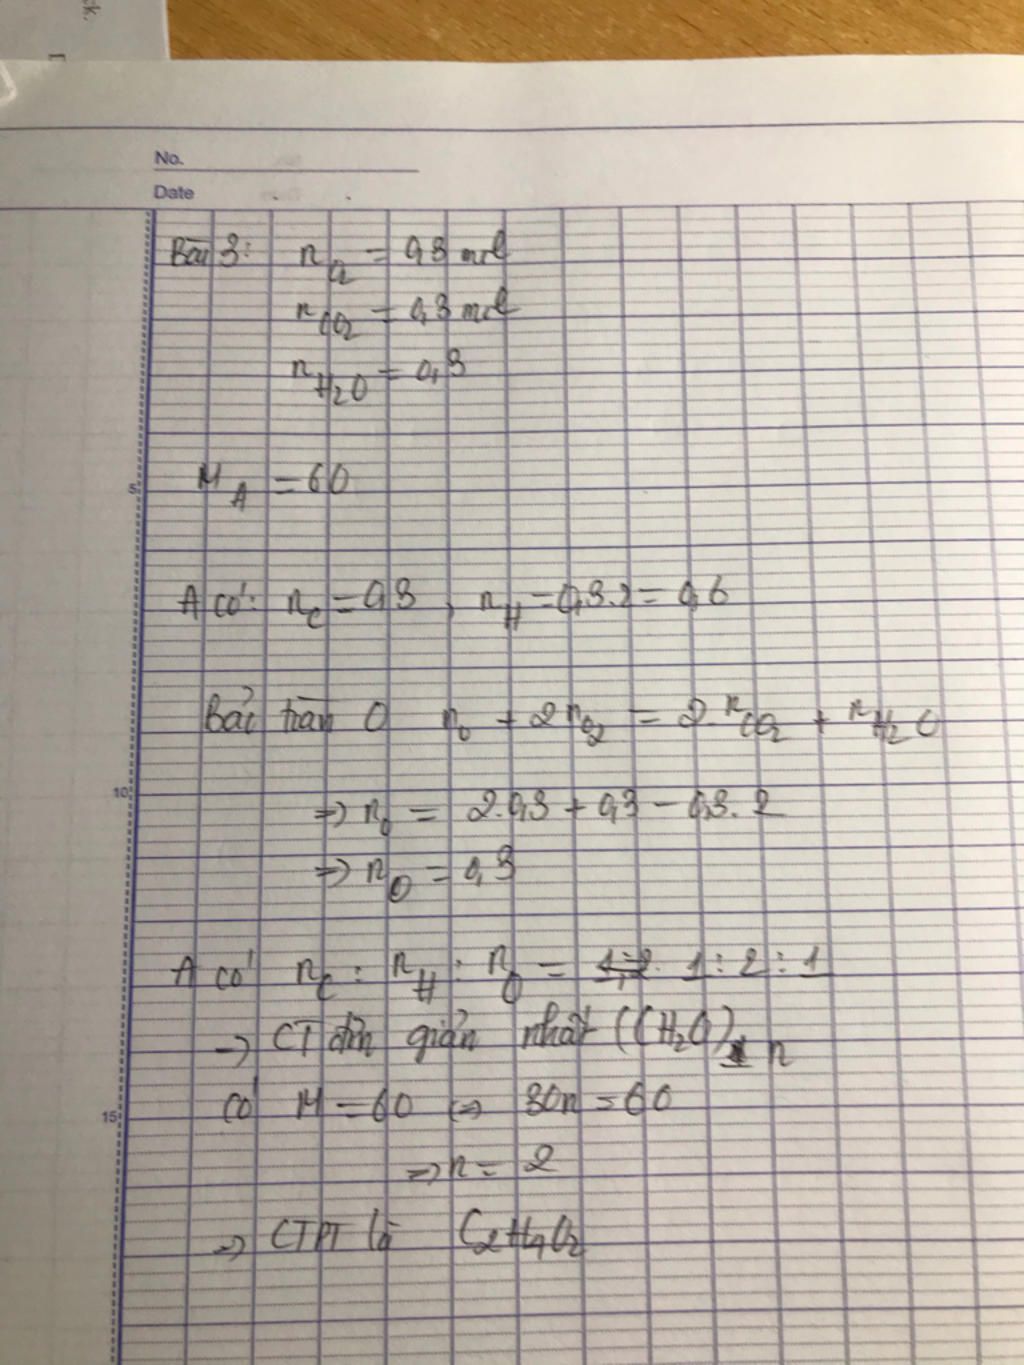 ck.
No.
Date
Bài 3: n O2 = 0,3 mol
n CO2 = 0,3 mol
n H2O = 0,3
5
M A = 60
A có: n C = 0,3, n H = 0,3.2 = 0,6
Bảo toàn O n O + 2 n O2 = 2 n CO2 + n H2O
10
=> n O = 2.0,3 + 0,3 - 0,3.2
=> n O = 0,3
A có n C : n H : n O = 1:2:1
-> CT đơn giản nhất (CH2O) n
15
có M = 60 <=> 30n = 60
=> n = 2
=> CTPT là C2H4O2